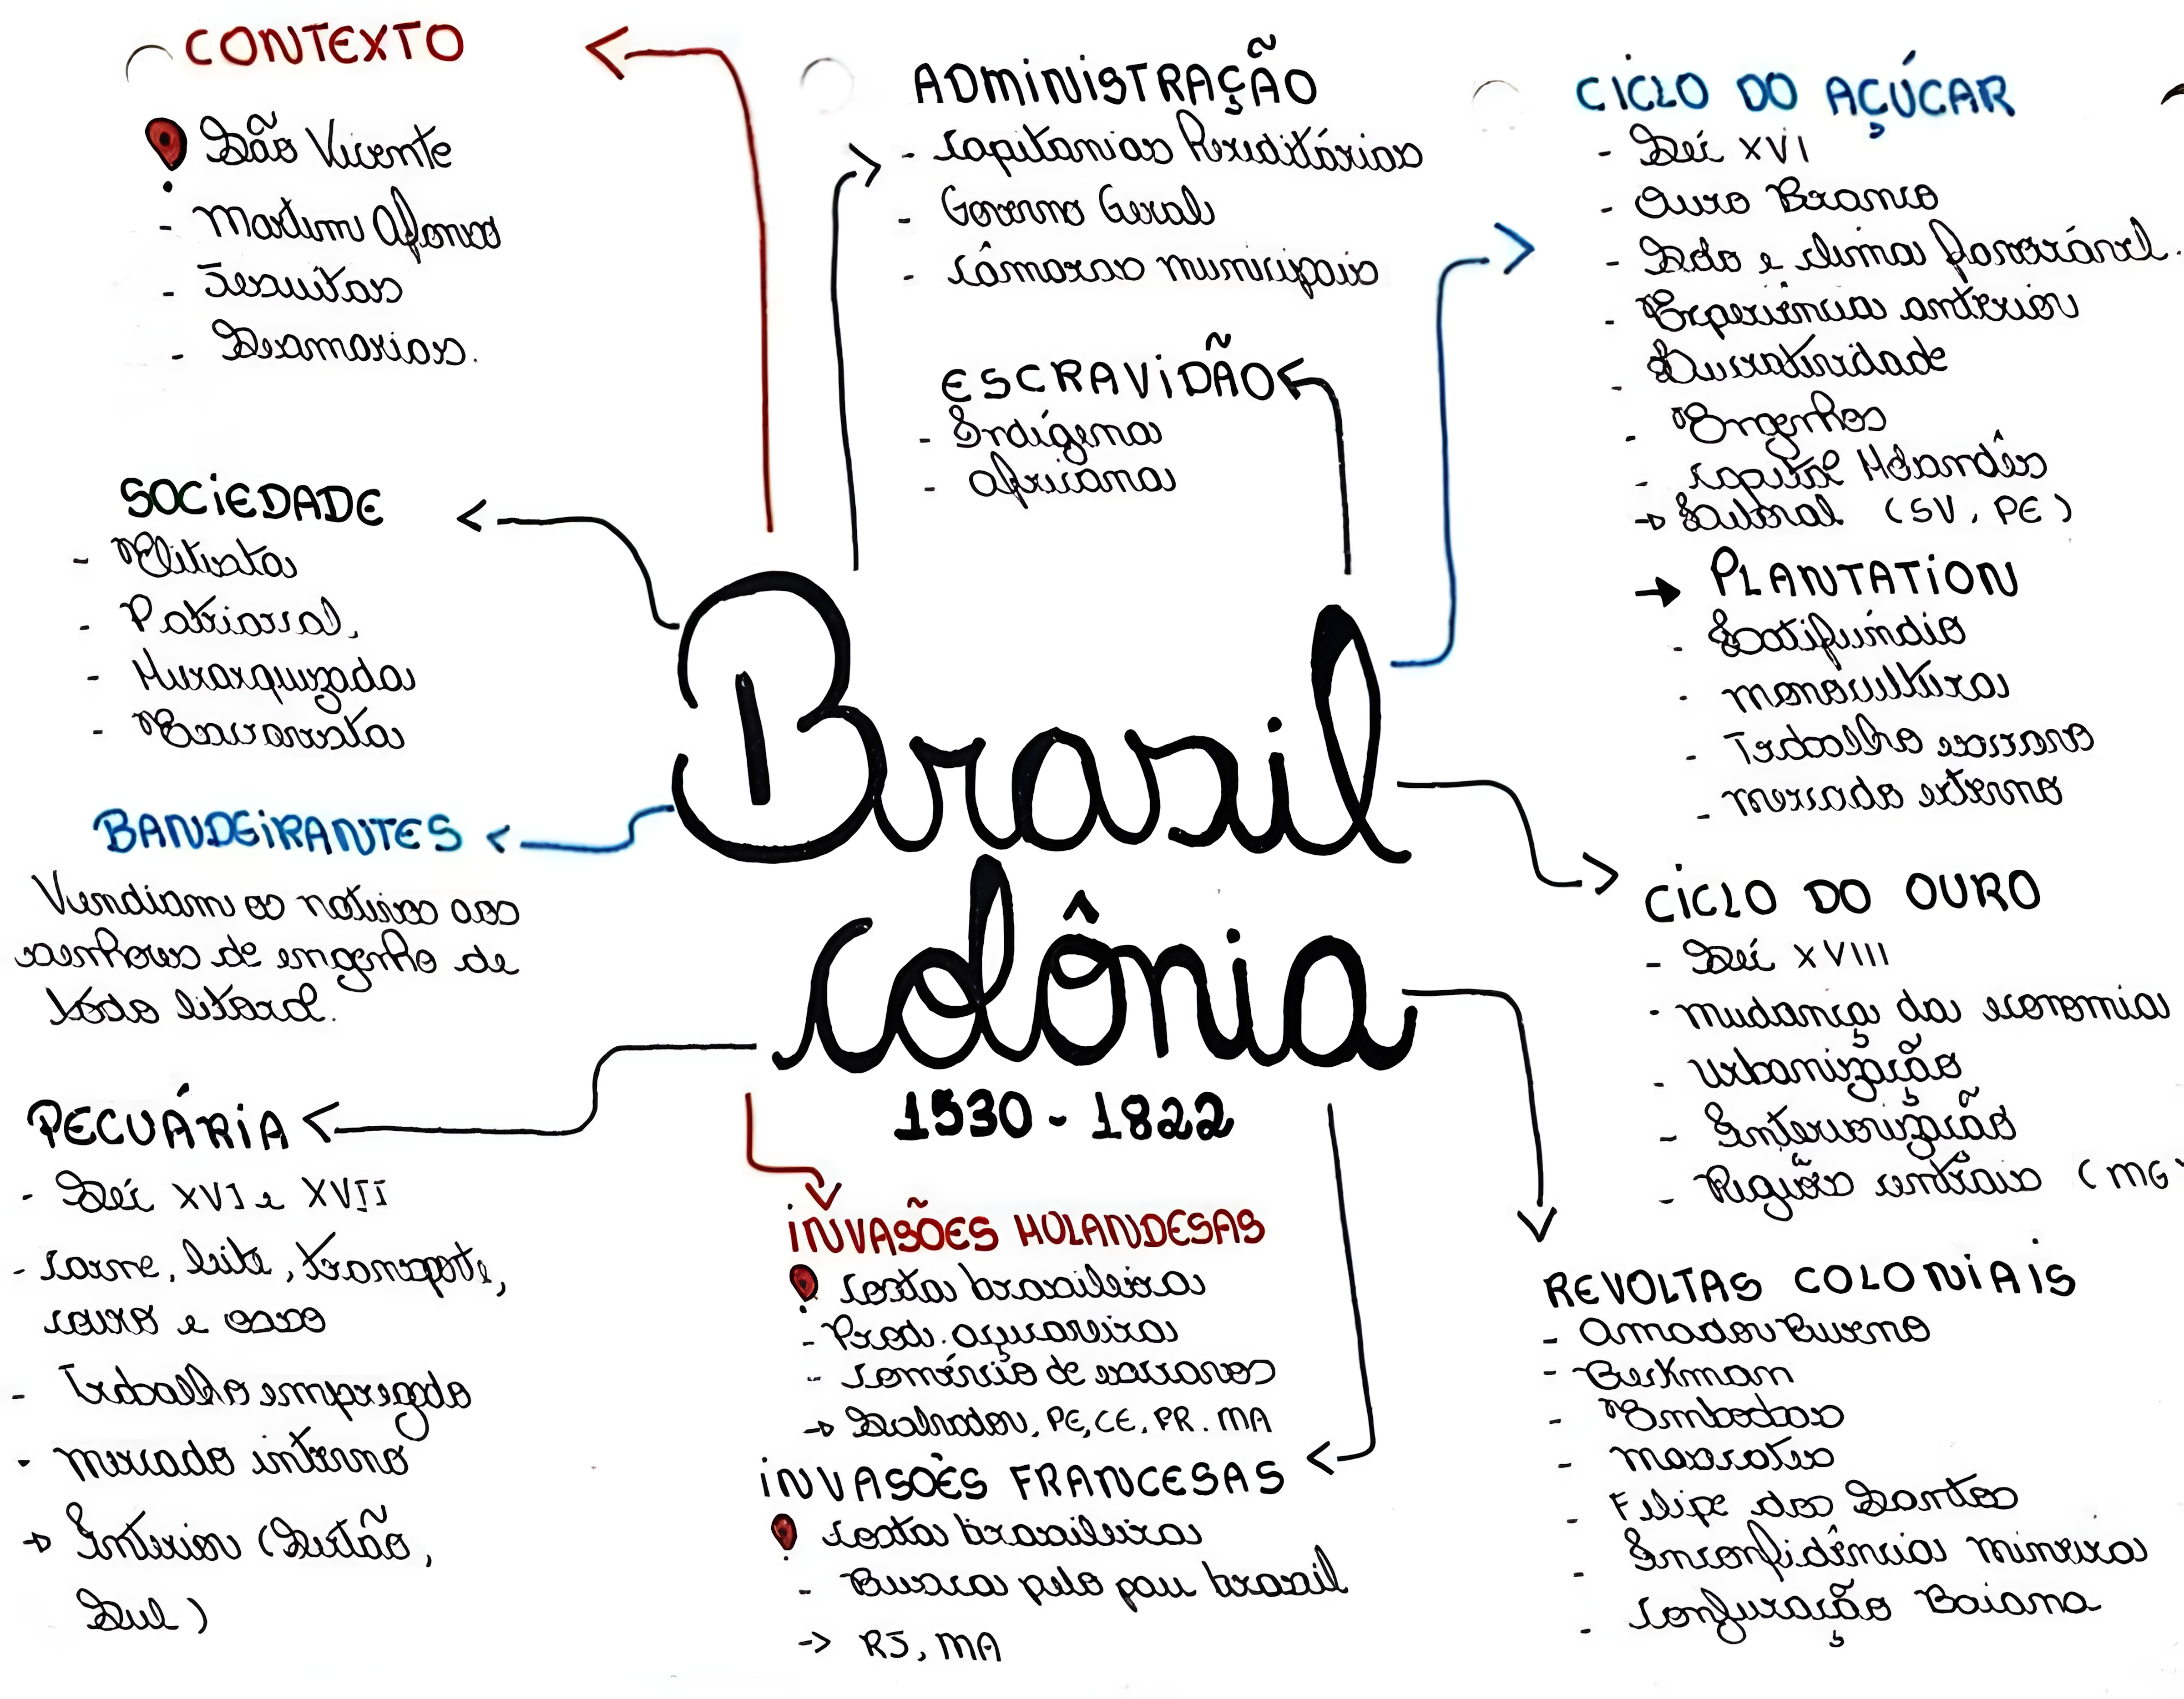 CONTEXTO
São Vicente
- Martim Afonso
- Jesuítas
- Sesmarias.
ADMINISTRAÇÃO
- Capitanias Hereditárias
- Governo Geral
- Câmaras municipais
ESCRAVIDÃO
- Indígena
- Africana
CICLO DO AÇÚCAR
- Séc XVI
- Ouro Branco
- Solo e clima favorável.
- Experiência anterior
- Lucratividade
- Engenhos
- Capital Holandês
→ Litoral (SV, PE)
→ PLANTATION
- Latifúndio
- monocultura
- Trabalho escravo
- mercado externo
SOCIEDADE
- Elitista
- Patriarcal,
- Hierarquizada
- Escravista
BANDEIRANTES
Vendiam os nativos aos
senhores de engenho de
todo litoral.
PECUÁRIA
- Séc XVI e XVII
- Carne, leite, transporte,
couro e osso
- Trabalho empregado
- mercado interno
→ Interior (Sertão,
Sul)
Brasil
Colônia
1530 - 1822
INVASÕES HOLANDESAS
Costa brasileira
- Prod. açucareira
- Comércio de escravos
→ Salvador, PE, CE, PR. MA
INVASOÊS FRANCESAS
Costa brasileira
- Busca pelo pau brasil
→ RJ, MA
CICLO DO OURO
- Séc XVIII
- mudança da economia
- Urbanização
- Interiorização
- Regiões centrais (MG)
REVOLTAS COLONIAIS
- Amador Bueno
- Beckman
- Emboabas
- mascates
- Filipe dos Santos
- Inconfidência mineira
- Conjuração Baiana